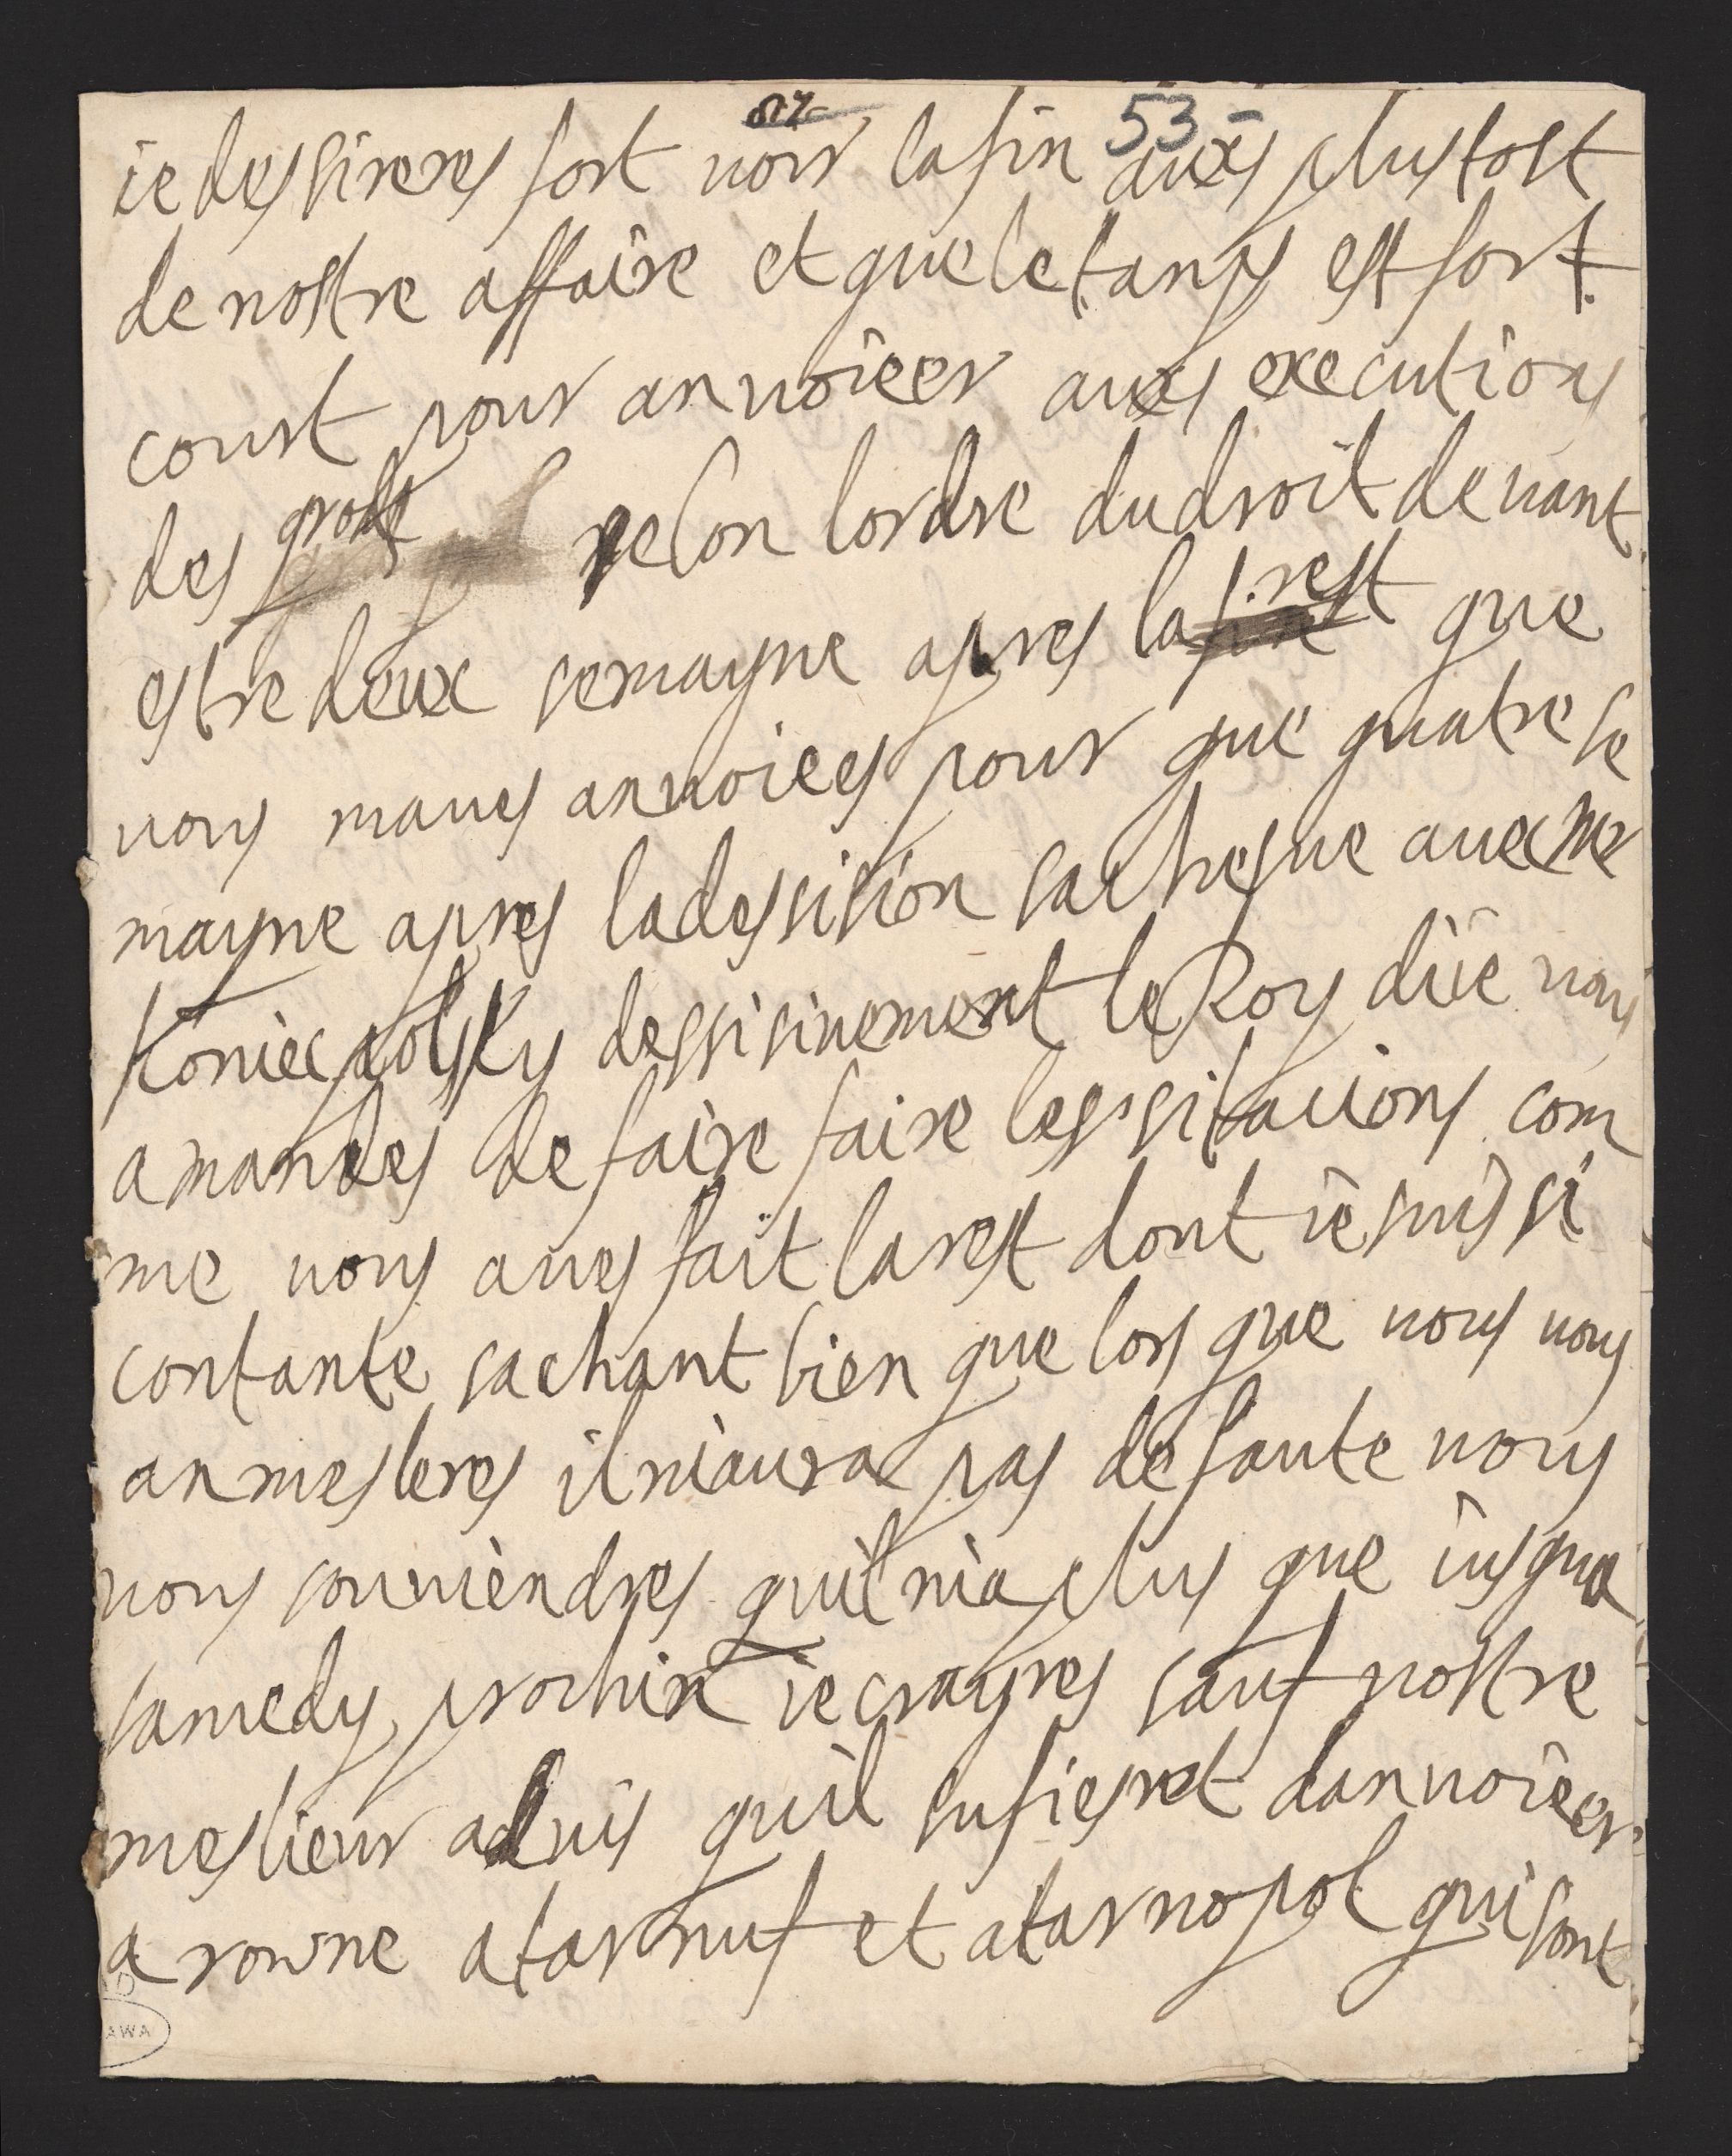 53
ie dessireres fort voir la fin aux plus tost
de nostre affaire et que le tamps est fort
court pour anvoieer aux execution
des grotz selon lordre du droit devant
estre deux semayne apres larest que
vous maves anvoiees pour que quatre se
mayne apres la dessision sachesque avec mr
Koniecpolsky dessisivement le Roy die vous
a mandes de faire faire les sitacions com
me vous aves fait larest dont ie suis si
contante sachant bien que lors que vous vous
an mesleres il niaura pas de faute vous
vous souviendres quil nia plus que iusqua
samedy prochin ie crayres sauf vostre
meslieur advis quil sufiesret danvoieer
a rowne a tarnuf et a tarnopol qui sont
AWA